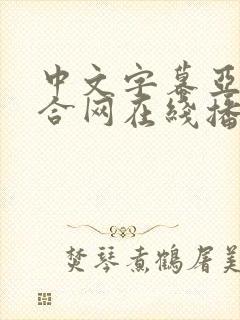 中文字幕亚
合网在线播
焚琴煮鹤屠美